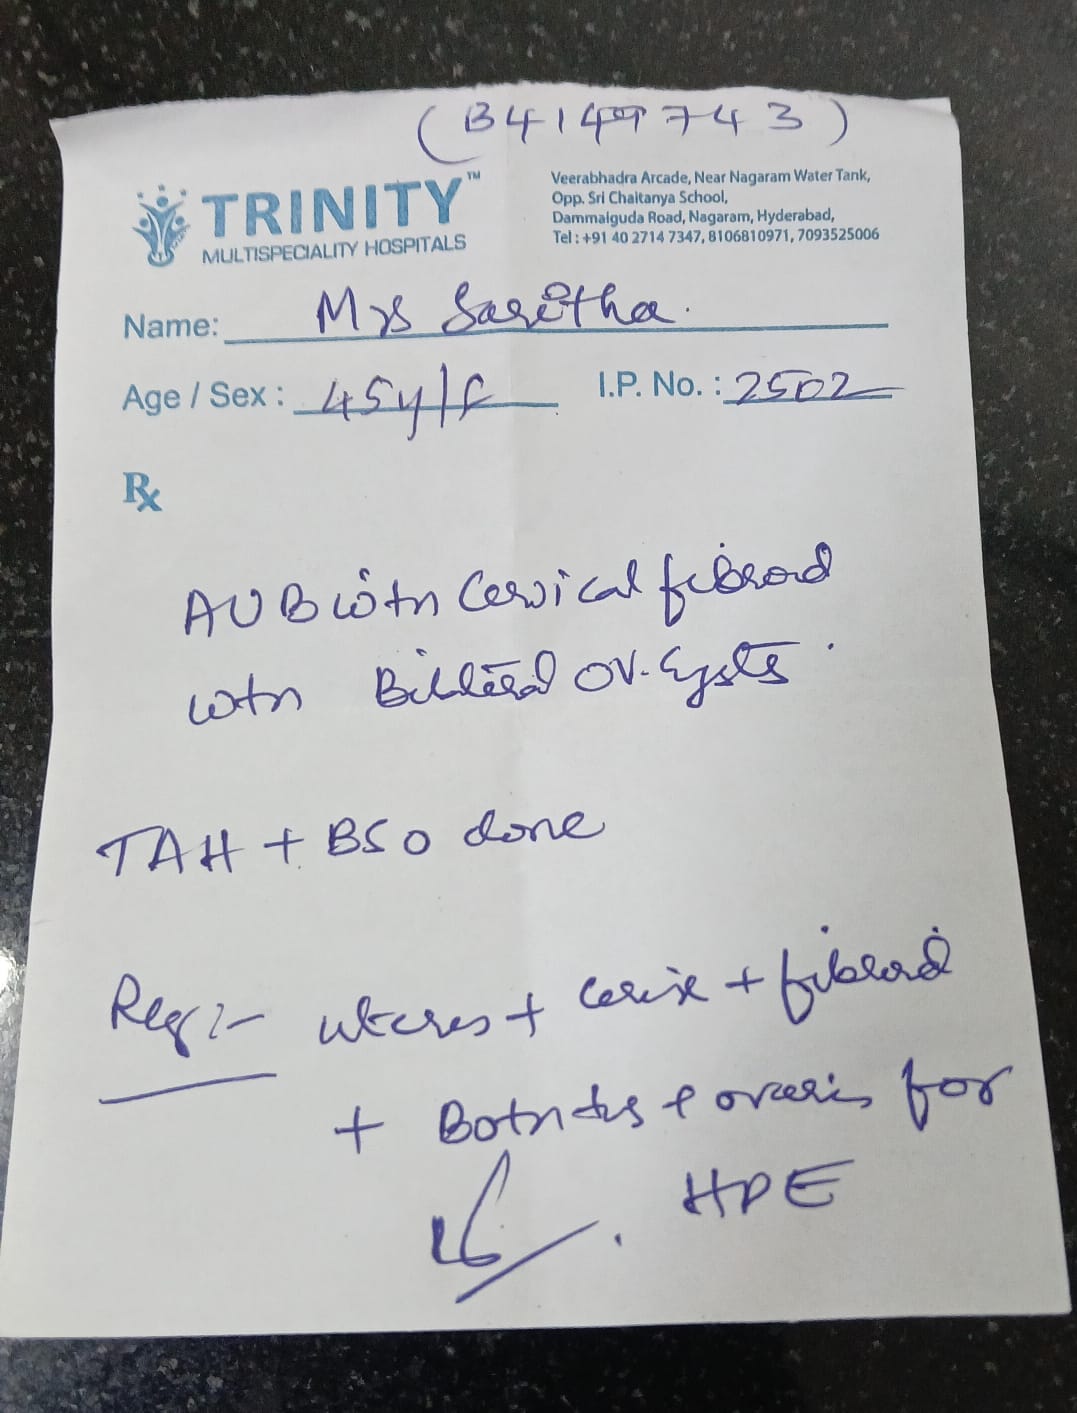 (B41497743)
TRINITY™
MULTISPECIALITY HOSPITALS
Veerabhadra Arcade, Near Nagaram Water Tank,
Opp. Sri Chaitanya School,
Dammaiguda Road, Nagaram, Hyderabad,
Tel : +91 40 2714 7347, 8106810971, 7093525006
Name: Mrs Saritha.
Age / Sex : 45y/f I.P. No. : 2502
Rx
AUB with Cervical fibroid
with Bilateral OV. Cysts.
TAH + BSO done
Req:- uterus + cervix + fibroid
+ Both tubes & ovaries for
HPE